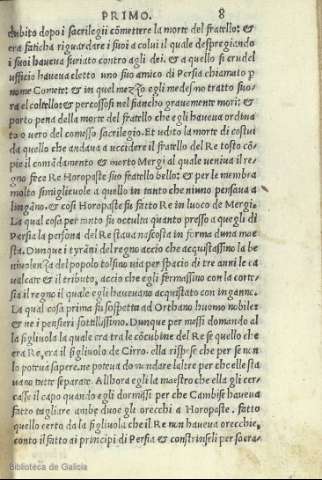 PRIMO. 8
dubito dopo i sacrilegii cõmettere la morte del fratello: &
era faticha riguardare i suoi a colui il quale despregiando
i suoi haueua furiato contro agli dei. & a quello si crudel
ufficio haueua eletto uno suo amico di Persia chiamato p
nome Comete: & in quel mezzo egli medesmo tratto fuo
ra el coltello: & percossosi nel fiancho grauemente mori: &
porto pena della morte del fratello che egli haueua ordina
ta o uero del comesso sacrilegio. Et udito la morte di costui
da quello che andaua a uccidere il fratello del Re tosto cõ-
pie il comãdamento & morto Mergi al quale ueniua il re-
gno fece Re Horopaste suo fratello bello: & per le membra
molto simigliuole a quello in tanto che niuno pensaua a
lingãno. & cosi Horopaste fu fatto Re in luoco de Mergi.
La qual cosa per tanto fu occulta quanto presso a quegli di
Persia la persona del Re staua nascosta in forma duna mae
sta. Dunque i tyrãni del regno accio che acquistassino la be
niuolenza del popolo tolsino uia per spacio di tre anni le ca
ualcate & il tributo, accio che egli fermassino con la corte-
sia il regno il quale egli haueuano acquistato con inganno.
La qual cosa prima fu sospetta ad Orthano huomo nobile
& ne i pensieri sottilissimo. Dunque per messi domando al
la figliuola la quale era tra le cõcubine del Re se quello che
era Re, era il figliuolo de Cirro. ella rispose che per se non
lo poteua sapere. ne poteua domandare laltre per che elle sta
uano tutte separate. Allhora egli la maestro che ella gli cer-
casse il capo quando egli dormissi per che Cambise haueua
fatto tagliare ambe duoe gli orecchi a Horopaste. fatto
quello certo da la figliuola che il Re non haueua orecchie,
conto il fatto ai principi di Persia & constrinseli per sacra-
Biblioteca de Galicia